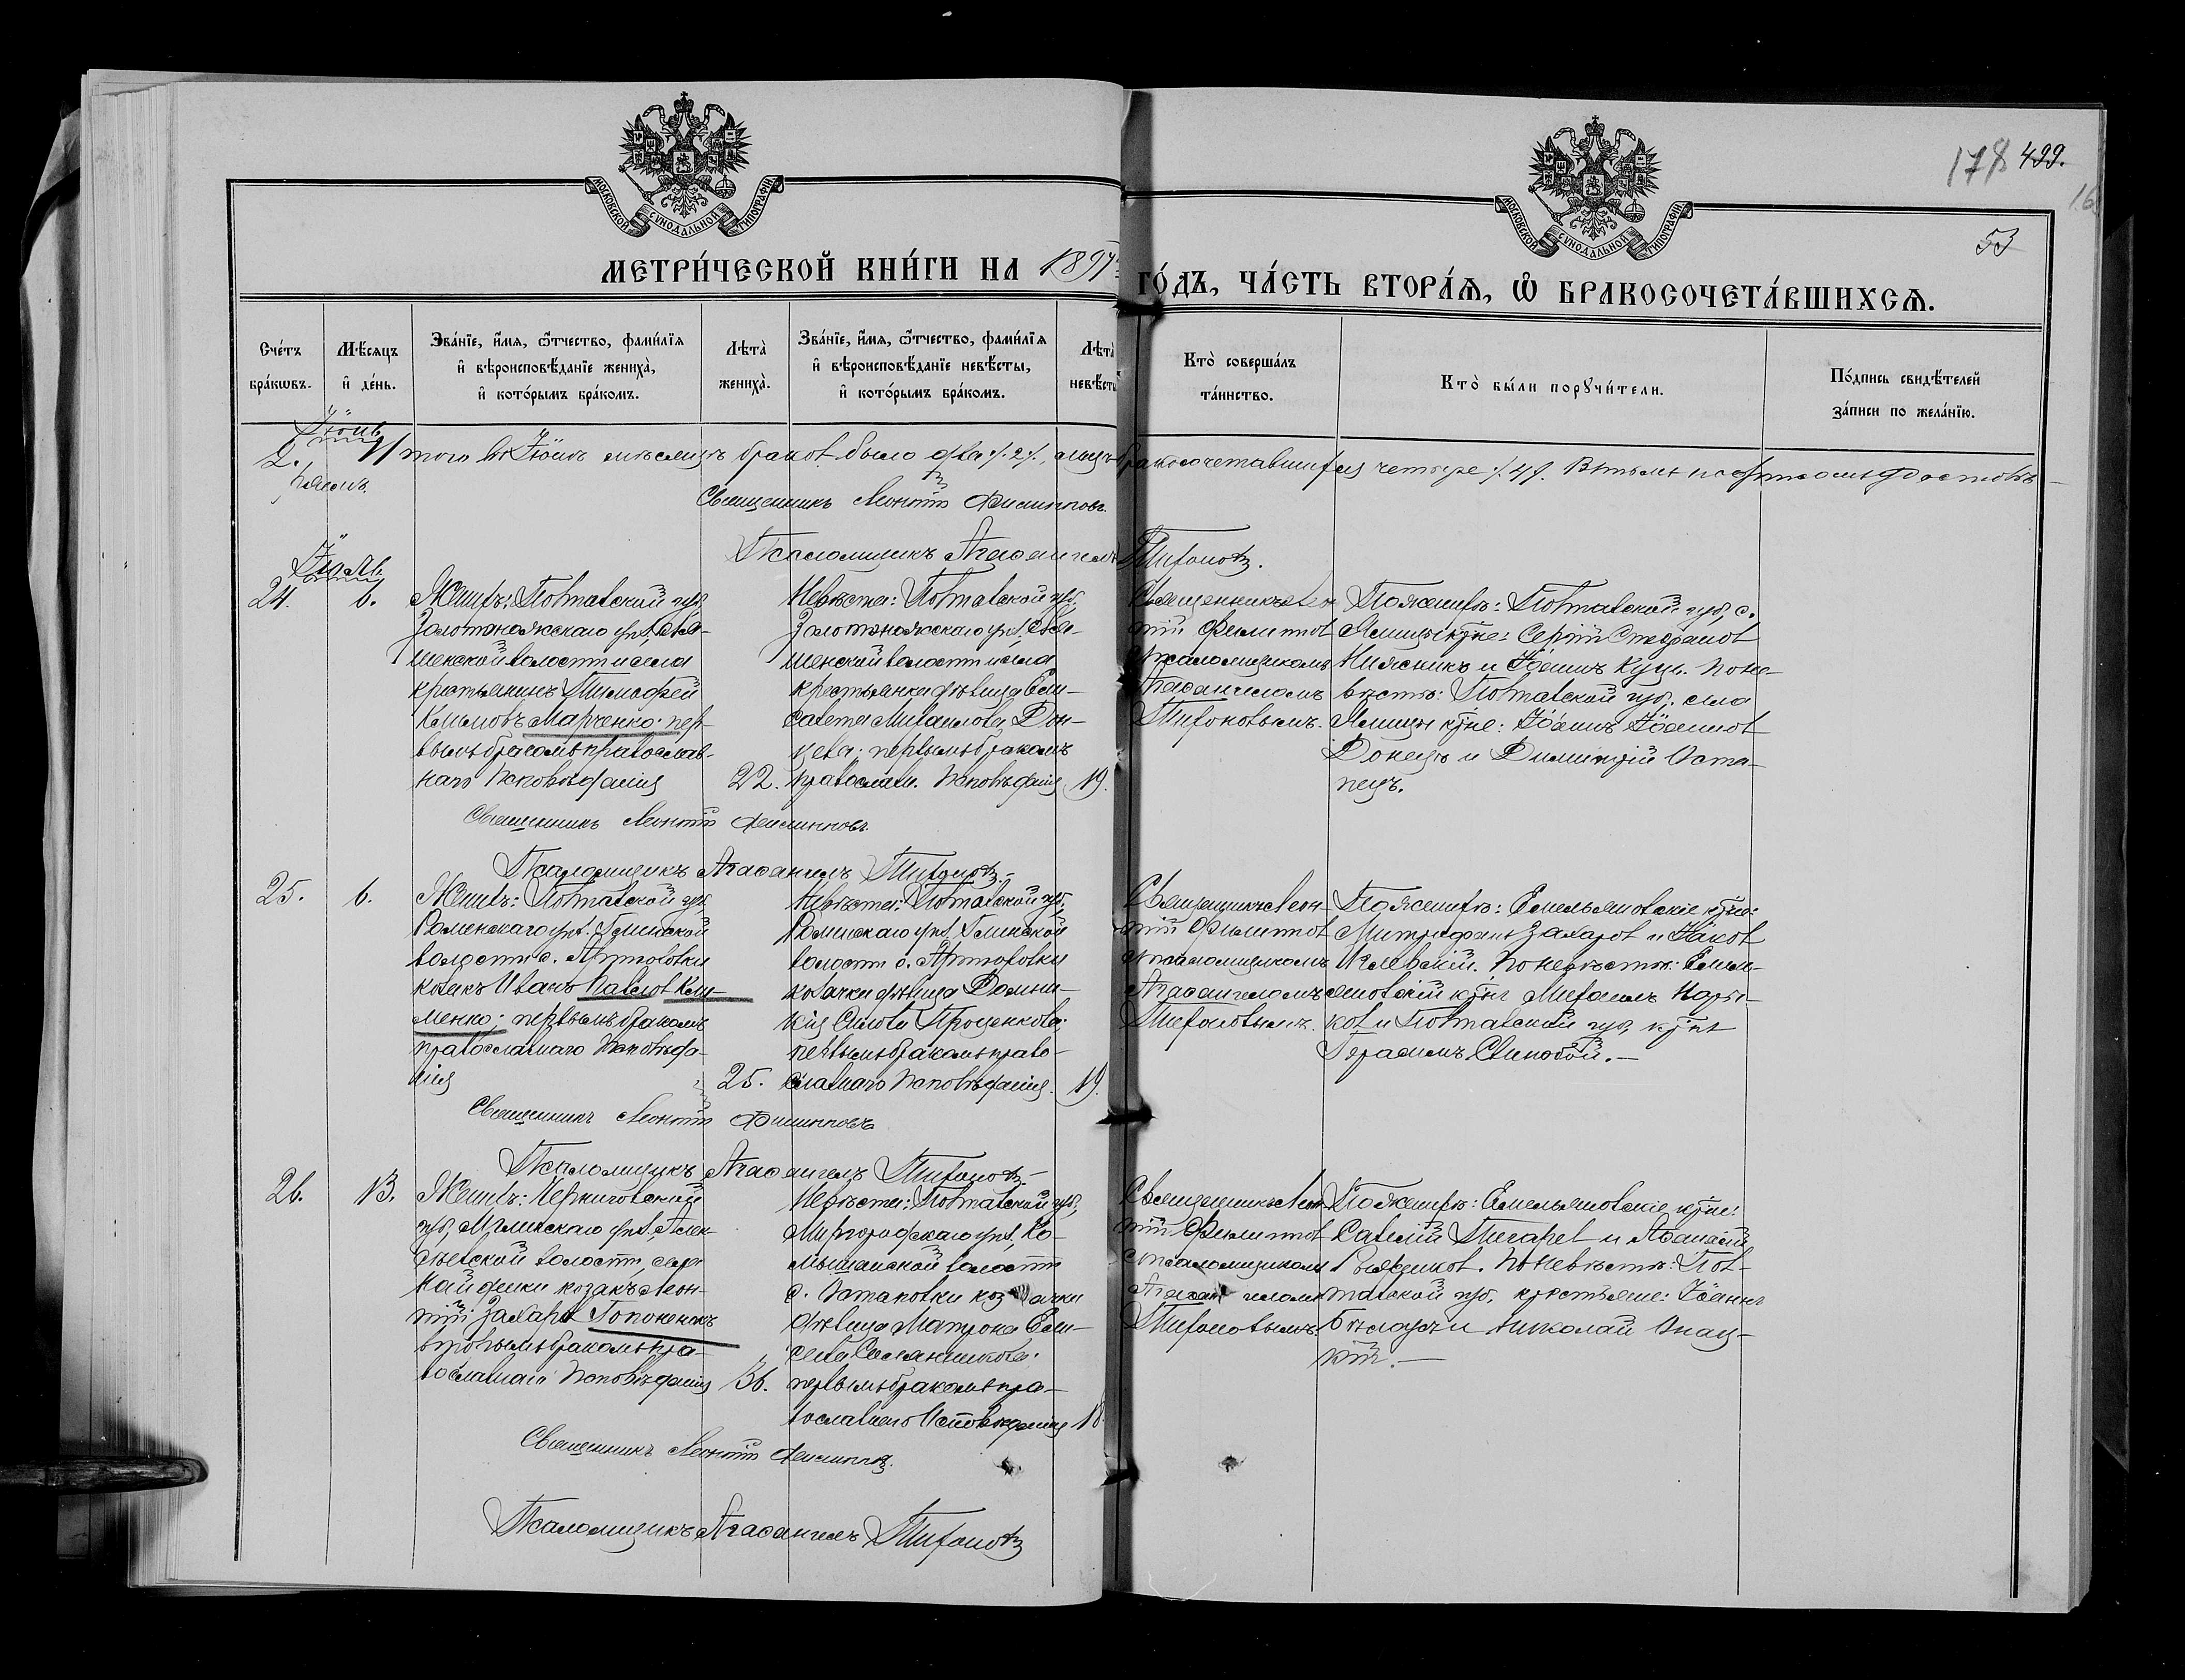 МОСКОВСКОЙ СУНОДАЛЬНОЙ ТИПОГРАФІИ
МОСКОВСКОЙ СУНОДАЛЬНОЙ ТИПОГРАФІИ
178 499.
53
МЕТРИ́ЧЕСКОЙ КНИ́ГИ НА 1897 ГО́ДЪ, ЧА́СТЬ ВТОРА́Ѧ, Ѡ҆ БРАКОСОЧЕТА́ВШИХСѦ.
Сче́тъ бра́кѡвъ.
Мѣ́сяцъ и҆ де́нь.
Зва́нїе, и҆́мя, ѻ҆́тчество, фами́лїя
и҆ вѣроисповѣ́данїе жениха̀,
и҆ кото́рымъ бра́комъ.
Лѣта̀ жениха̀.
Зва́нїе, и҆́мя, ѻ҆́тчество, фами́лїя
и҆ вѣроисповѣ́данїе невѣ́сты,
и҆ кото́рымъ бра́комъ.
Лѣта̀ невѣ́сты
Кто̀ соверша́лъ та́инство.
Кто̀ бы́ли порꙋчи́тели.
По́дпись свидѣ́телей за́писи по жела́нїю.
Іюнь
2. Итого въ Іюнѣ мѣсяцѣ браковъ было два /2/, лицъ бракосочетавшихся четыре /4/. Въ томъ и свидѣтельствовали
Священникъ Леонтій Филипповъ.
Псаломщикъ Агафангелъ Тихоновъ.
Іюль
24.
6.
Женихъ: Полтавской губ.
Золотоношскаго уѣз.
шенской волости и села
крестьянинъ Тимофей
Климовъ Марченко: пер-
вымъ бракомъ православ-
наго исповѣданія
22.
Невѣста: Полтавской губ.
Золотоношскаго уѣз.
шенской волости и села
крестьянка дѣвица Ели-
савета Михаилова Дон-
цева; первымъ бракомъ
православн. исповѣданія
19.
Священникъ Леон-
тій Филиппов
съ псаломщикомъ
Агафангеломъ
Тихоновымъ.
По женихѣ: Полтавской губ. с.
кр҃не: Сергій Стефанов
и Іоаннъ Куц. По не-
вѣстѣ: Полтавской губ. села
кр҃не: Іоаннъ Іоаннов
Донецъ и Димитрій Оста-
пецъ.
Священникъ Леонтій Филипповъ.
Псаломщикъ Агафангелъ Тихоновъ.
25.
6.
Женихъ: Полтавской губ.
Роменскаго уѣз. Глинской
волости с. Артюховки
козакъ Иванъ Павлов Кли-
менко: первымъ бракомъ
православнаго исповѣда-
нія
25.
Невѣста: Полтавской губ.
Роменскаго уѣз. Глинской
волости с. Артюховки
козачка дѣвица Домни-
кія Силова Проценкова;
первымъ бракомъ право-
славнаго исповѣданія.
19.
Священникъ Леон-
тій Филиппов
съ псаломщикомъ
Агафангеломъ
Тихоновымъ.
По женихѣ: Емельяновскіе кр҃не:
Митрофанъ Захаров и Іаков
По невѣстѣ: Емель-
яновскій кр҃нъ Михаилъ
ков и Полтавской губ. кр҃нъ
Герасимъ
Священникъ Леонтій Филипповъ
Псаломщикъ Агафангелъ Тихоновъ.
26.
13.
Женихъ: Черниговской
губ. Мглинскаго уѣз.
волости, села
Найденки козакъ Леон-
тій Захаров Гопоненокъ
вторымъ бракомъ пра-
вославнаго исповѣданія
36.
Невѣста: Полтавской губ.
Миргородскаго уѣз. Ко-
мышанской волости
с. Остаповки козачка
дѣвица Матрона Ели-
сеева
первымъ бракомъ пра-
вославнаго исповѣданія
18
Священникъ Леон-
тій Филиппов
съ псаломщикомъ
Агафангеломъ
Тихоновымъ.
По женихѣ: Емельяновскіе кр҃не:
Савелій Тигарев и Афанасій
По невѣстѣ: Пол-
тавской губ. крестьяне: Іоаннъ
и Николай
Священникъ Леонтій Филипповъ.
Псаломщикъ Агафангелъ Тихоновъ